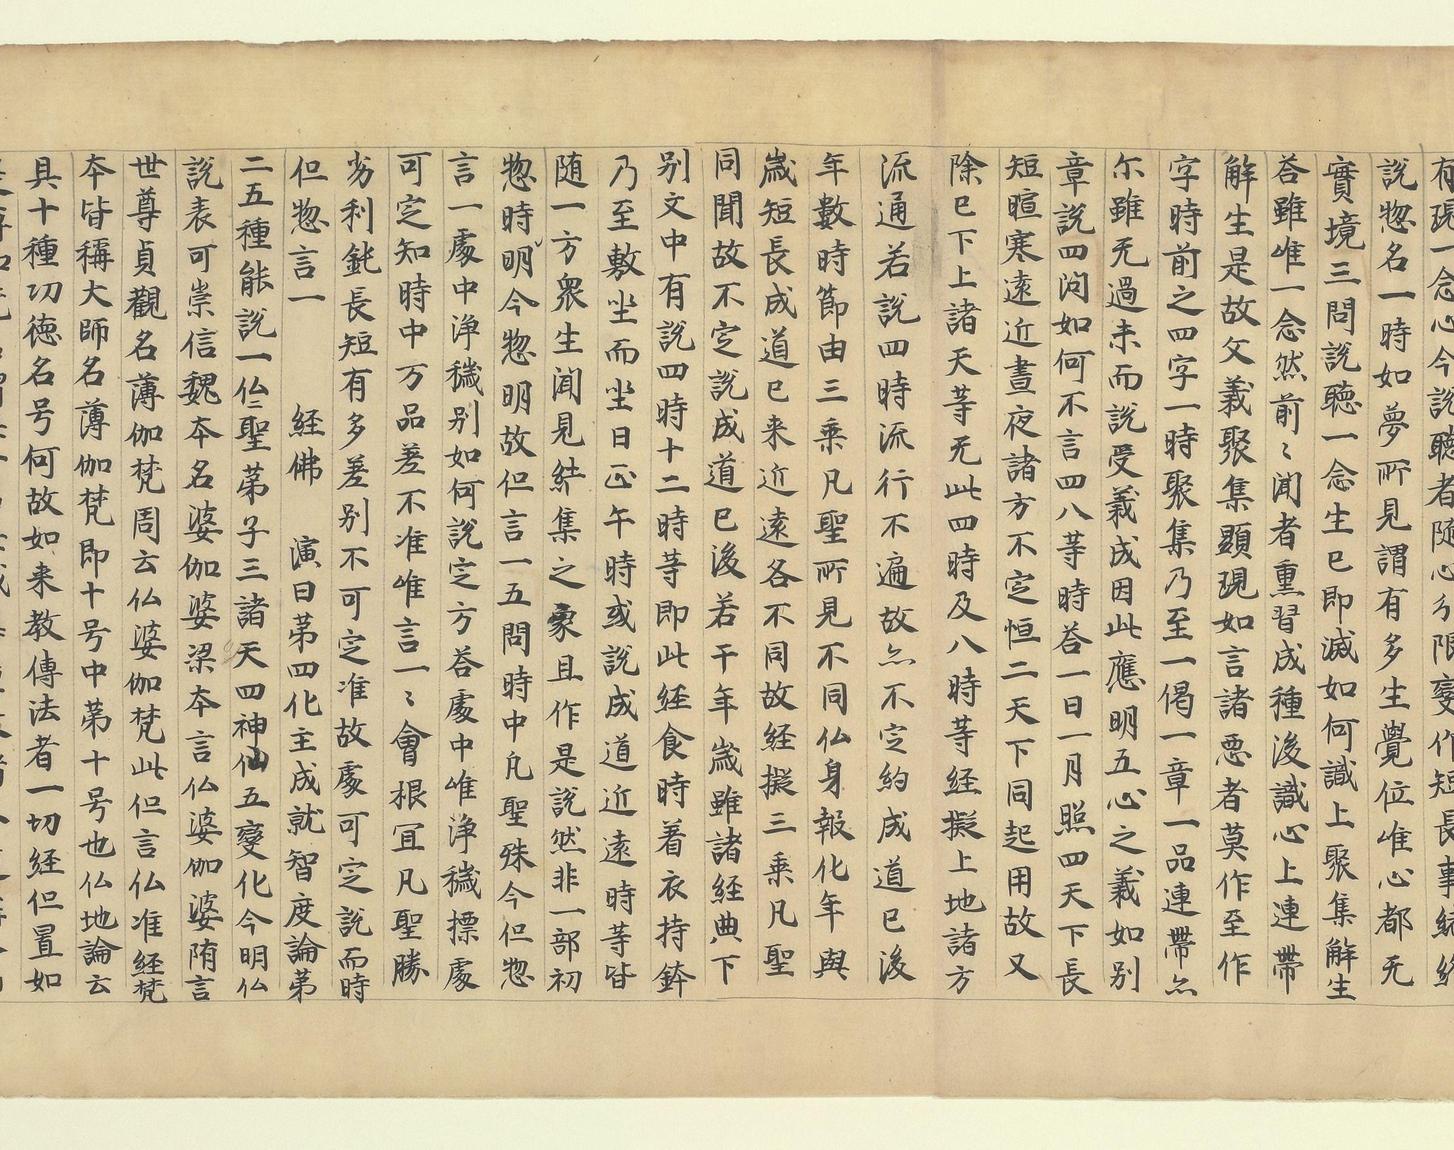 說惣名一時如夢所見謂有多生覺位唯心都无
實境三問說聽一念生已即滅如何識上聚集解生
荅雖唯一念然前〻聞者熏習成種後識心上連帶
解生是故文義聚集顯現如言諸惡者莫作至作
字時前之四字一時聚集乃至一偈一章一品連帶亦
尒雖无過未而說受義成因此應明五心之義如別
章說四問如何不言四八等時荅一日一月照四天下長
短暄寒遠近晝夜諸方不定恒二天下同起用故又
除已下上諸天等无此四時及八時等経擬上地諸方
流通若說四時流行不遍故亦不定約成道已後
年數時節由三乘凡聖所見不同仏身報化年與
歳短長成道已来近遠各不同故経擬三乘凡聖
同聞故不定說成道已後若干年歳雖諸経典下
別文中有說四時十二時等即此経食時着衣持鉢
乃至敷坐而坐日正午時或說成道近遠時等皆
随一方衆生聞見結集之象且作是說然非一部初
惣時明今惣明故但言一五問時中凡聖殊今但惣
言一處中浄穢別如何說定方荅處中唯浄穢摽處
可定知時中万品差不准唯言一〻會根冝凡聖勝
劣利鈍長短有多差別不可定准故處可定說而時
但惣言一　経佛　演曰苐四化主成就智度論苐
二五種能說一仏二聖苐子三諸天四神仙五變化今明仏
說表可崇信魏夲名婆伽婆梁夲言仏婆伽婆隋言
世尊貞觀名薄伽梵周云仏婆伽梵此但言仏准経梵
夲皆稱大師名薄伽梵即十号中苐十号也仏地論云
具十種功徳名号何故如来教傳法者一切経但置如